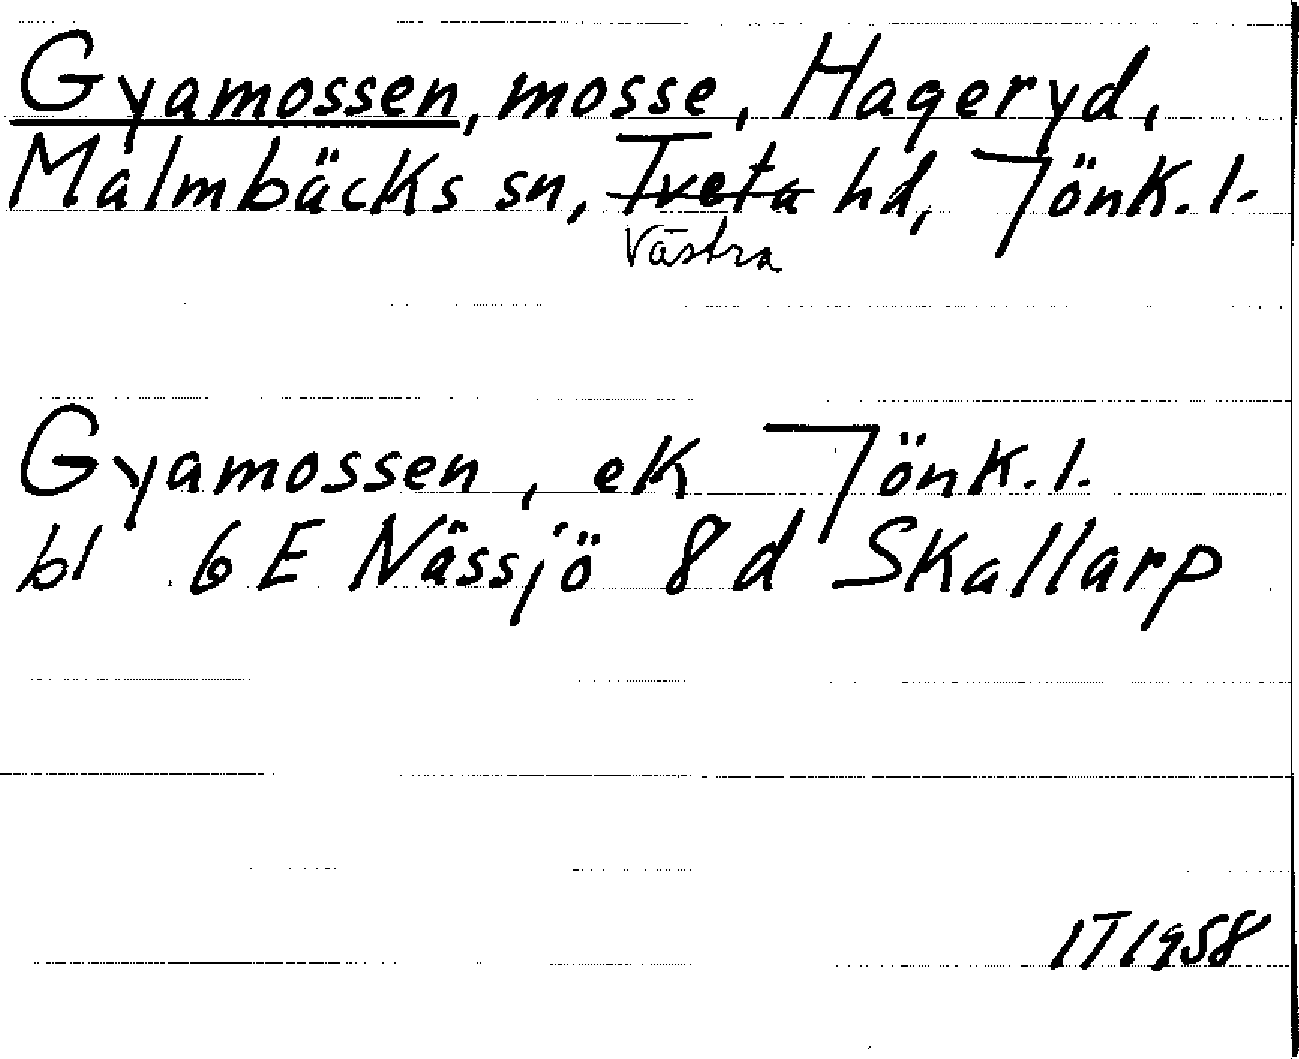 Gyamossen, mosse, Hageryd,
Malmbäcks sn, Tveta hd, Jönk. l.
Västra
Gyamossen, ek Jönk. l.
bl 6 E Nässjö 8 d Skallarp
IT 1958